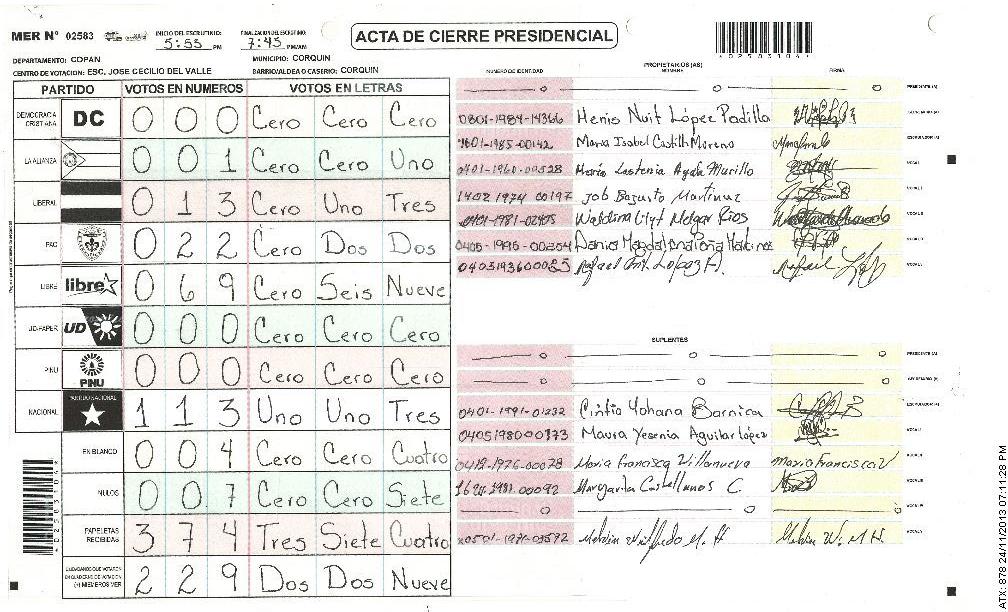 MER N° 02583 INICIO DEL ESCRUTINIO: 5:55 PM FINALIZACION DEL ESCRUTINIO: 7:45 PM/AM
ACTA DE CIERRE PRESIDENCIAL
DEPARTAMENTO: COPAN MUNICIPIO: CORQUIN
CENTRO DE VOTACION: ESC. JOSE CECILIO DEL VALLE BARRIO/ALDEA O CASERIO: CORQUIN
PARTIDO VOTOS EN NUMEROS VOTOS EN LETRAS
DEMOCRACIA CRISTIANA DC 0 0 0 Cero Cero Cero
LA ALIANZA 0 0 1 Cero Cero Uno
LIBERAL 0 1 3 Cero Uno Tres
PAC 0 2 2 Cero Dos Dos
LIBRE libre 0 6 9 Cero Seis Nueve
UD-FAPER UD 0 0 0 Cero Cero Cero
PINU PINU 0 0 0 Cero Cero Cero
NACIONAL PARTIDO NACIONAL 1 1 3 Uno Uno Tres
EN BLANCO 0 0 4 Cero Cero Cuatro
NULOS 0 0 7 Cero Cero Siete
PAPELETAS RECIBIDAS 3 7 4 Tres Siete Cuatro
CIUDADANOS QUE VOTARON EN CUADERNO DE VOTACION (+) MIEMBROS MER 2 2 9 Dos Dos Nueve
PROPIETARIOS (AS)
NUMERO DE IDENTIDAD NOMBRE FIRMA
PRESIDENTE (A)
0801-1984-14366 Henis Nuit López Padilla
1601-1985-00142 Maria Isabel Castillo Moreno
0401-1960-00528 María Lastenia Ayala Murillo
1402 1974 00197 Job Basusto Martinez
0401-1981-02405 Waldina Lilyt Melgar Rios
0405-1996-00204
0403193600025 Rafael López
SUPLENTES
PRESIDENTE (A)
SECRETARIO (A)
0401-1991-01232 Cintia Yohana Barnica
0405198000173 Maura Yesenia Aguilar López
0412-1976-00078 Maria Francisca Villanueva Maria Francisca V
1621-1981-00092 Margarita Castellanos C.
0501-1971-03592 Melvin Wilfredo M. H Melvin W. M H
02583104
ATX: 878 24/11/2013 07:11:28 PM